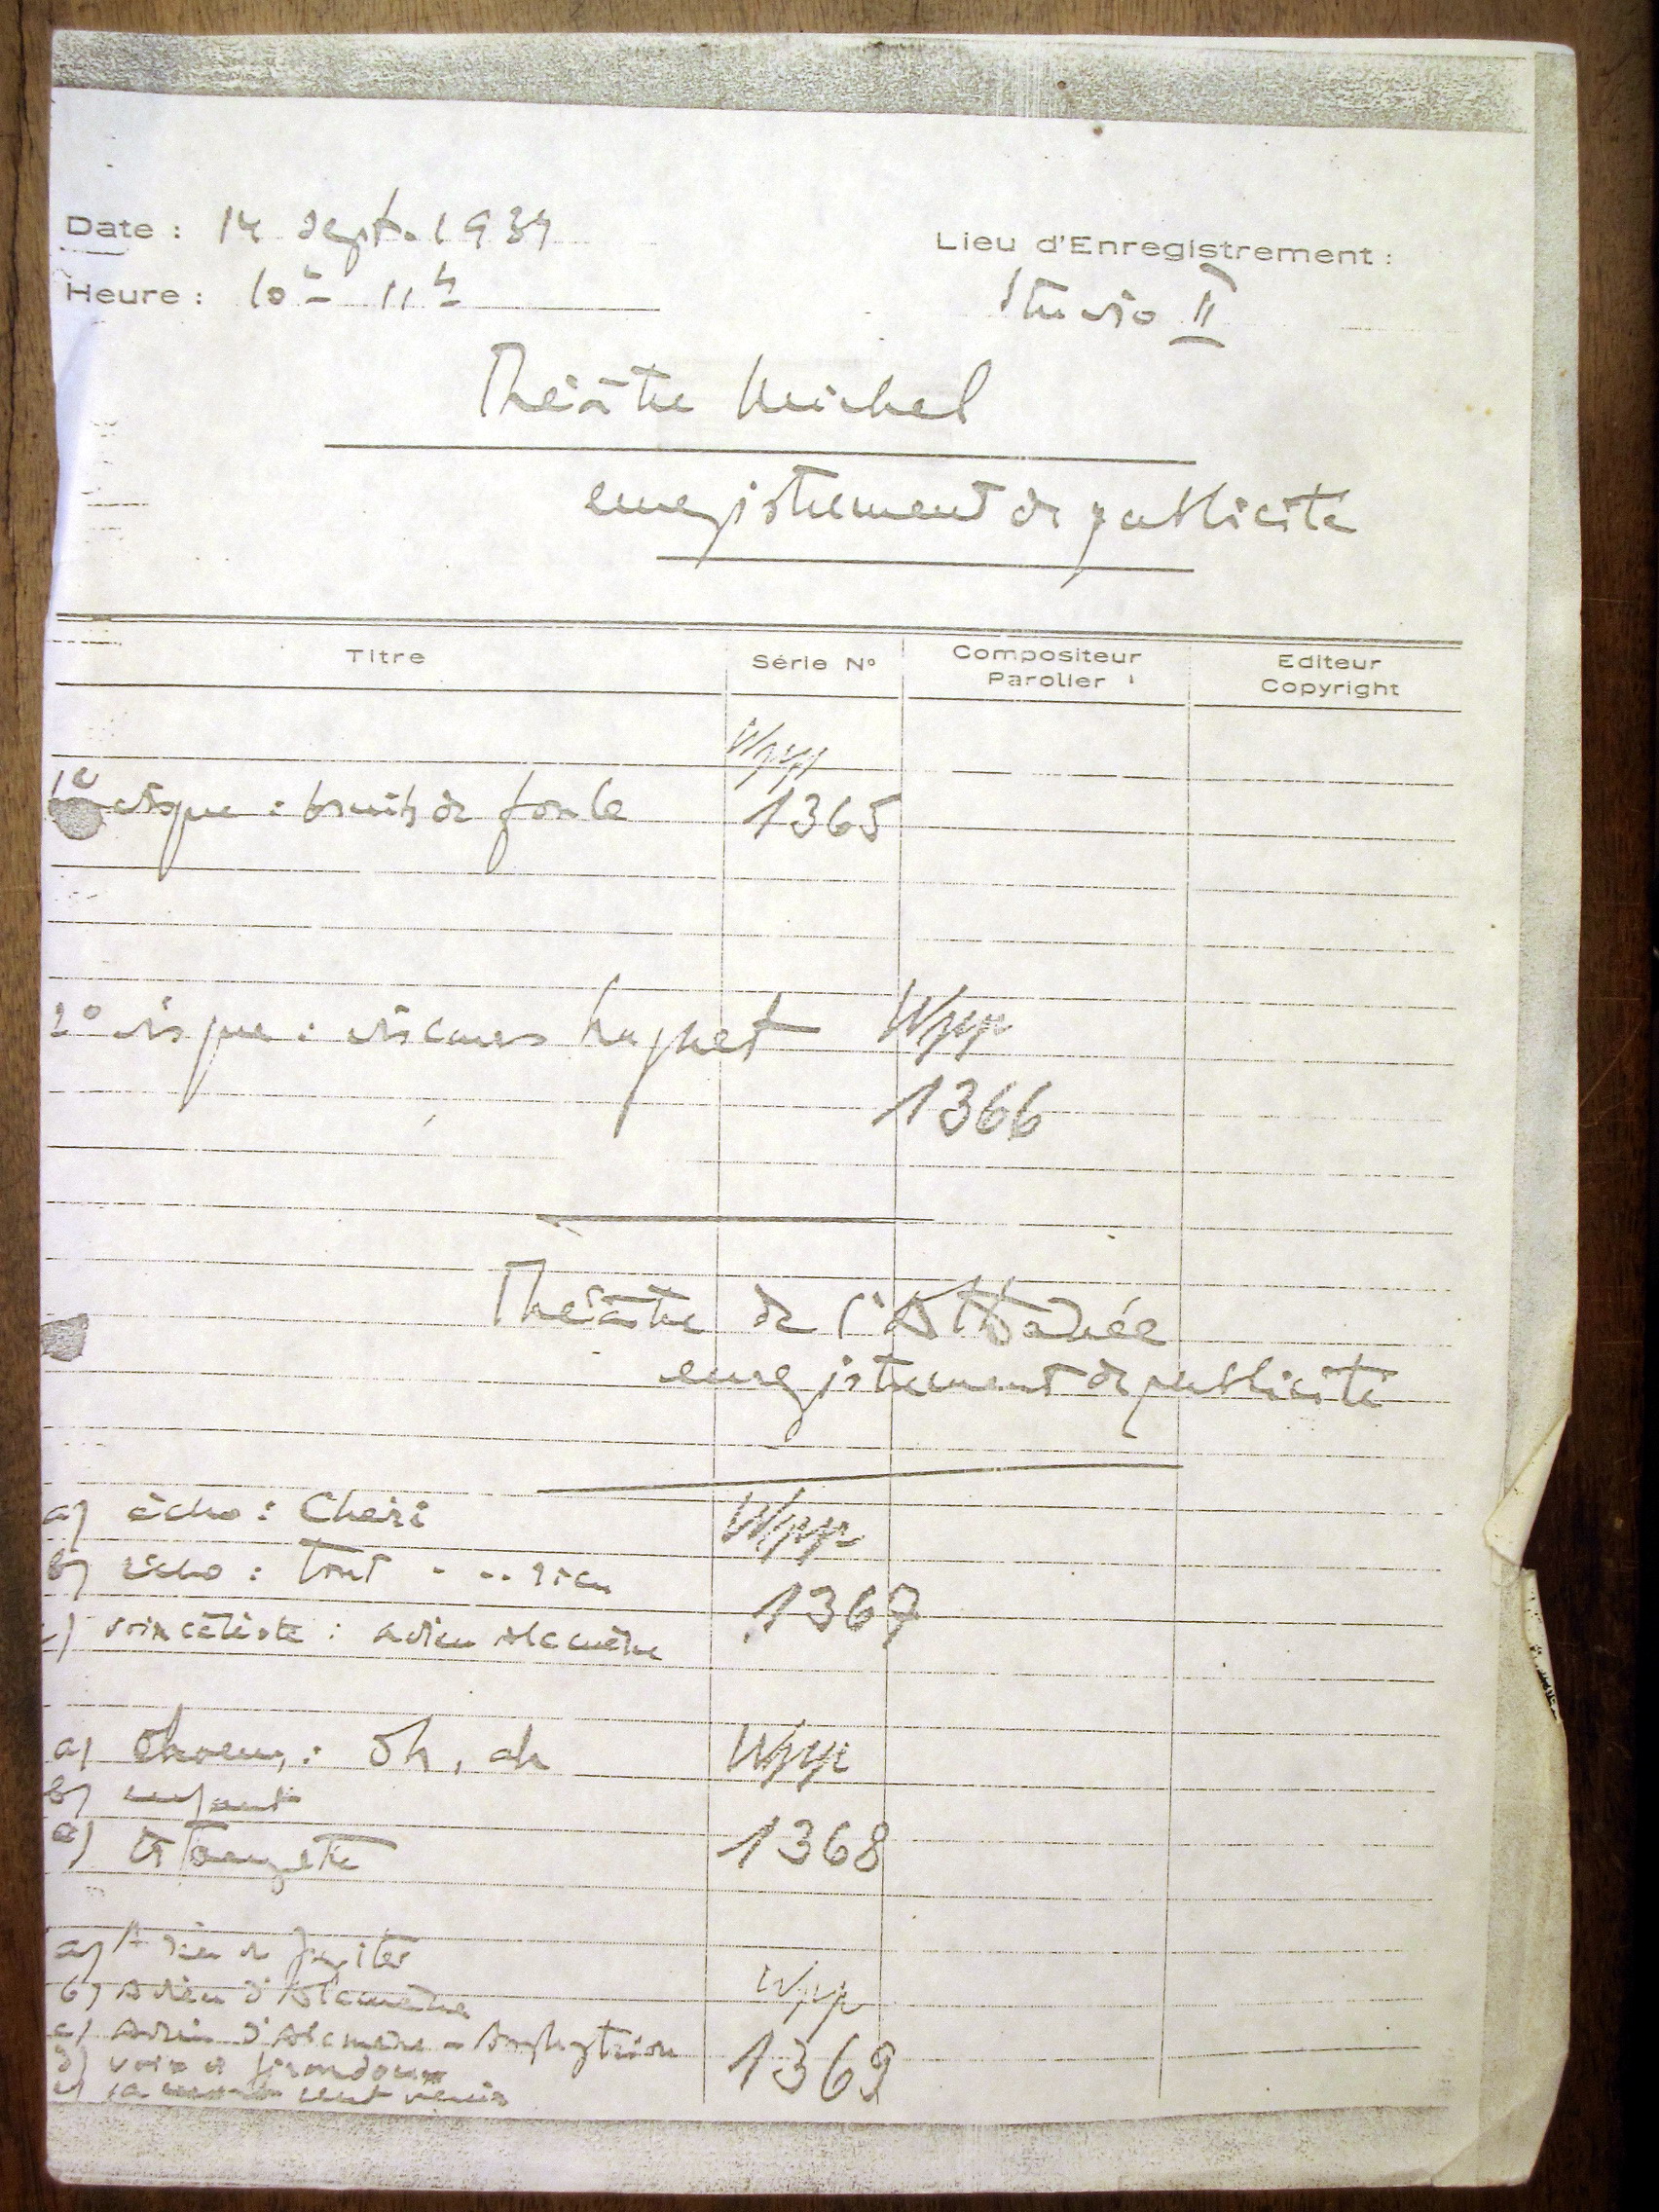 Date : 14 sept. 1934
Lieu d'Enregistrement :
Heure : 10h - 11h
Studio II
Théâtre Michel
enregistrement de publicité
Titre
Série N°
Compositeur
Parolier
Editeur
Copyright
Wpp
1e disque : bruits de foule
1365
2° disque : discours huguet Wpp
1366
Théâtre de l'Athénée
enregistrement de publicité
a) écho : Chéri
Wpp
b) écho : Tout . .. rien
1367
c) voix céleste : adieu Alcmène
a) : Oh, ah
Wpp
b)
c) trompette
1368
a) Adieu de Jupiter
Wpp
b) Adieu d'Alcmène
c) Adieu d'Alcmène - Amphytrion
1369
d) voix de Giraudoux
e)